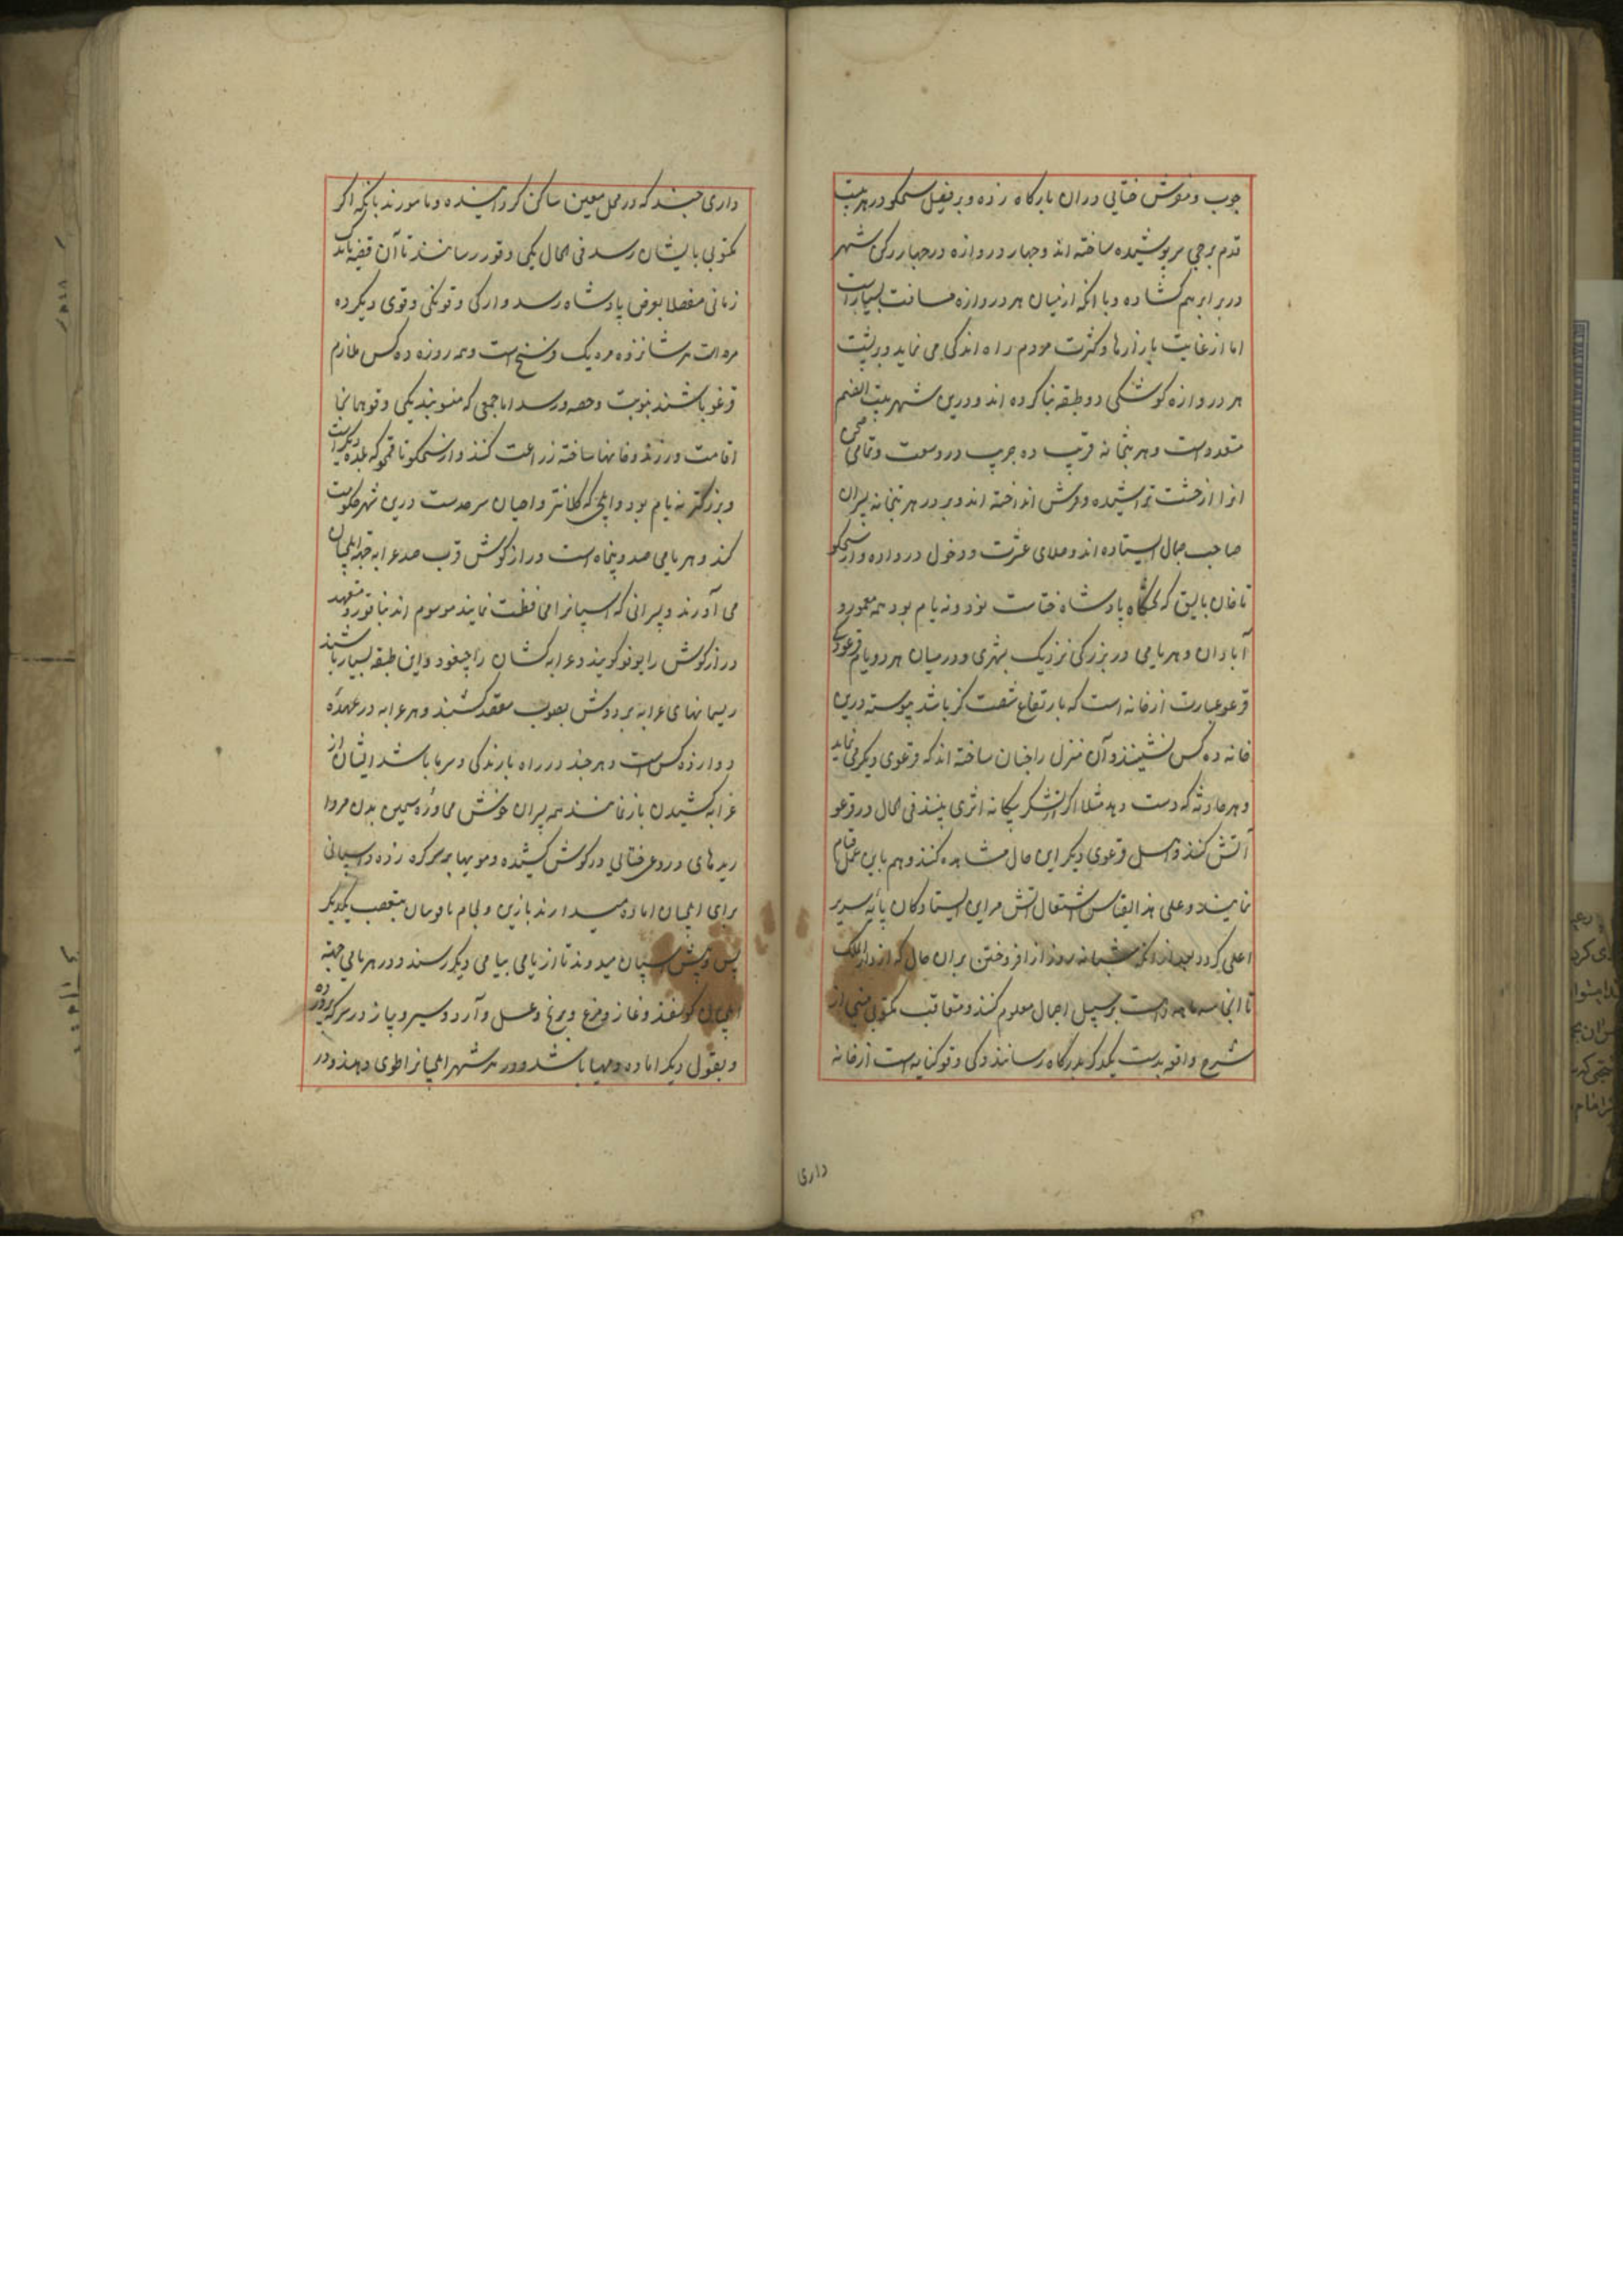 چوب و منقوش ختایی دران بارکاه زده و بر فصیل سکجو در هر بیست
قدم برجی سر پوشیده ساخته اند و چهار دروازه در چهار رکن شهر
در برابر هم کشاده و با انکه از میان هر دروازه مسافت بسیار است
اما از غایت بازارها و کثرت مردم راه اندکی می نماید و بر پشت
هر دروازه کوشکی دو طبقه بنا کرده اند و درین شهر بیت الصنم
متعدد است و هر بتخانه قریب ده جریب در وسعت و تمامی صحن
انرا از خشت تراشیده فرش انداخته اند و بر در هر بتخانه پسران
صاحب جمال ایستاده اند و صلای عشرت و دخول در داده و از سکجو
تا خان بالیق که تختکاه پادشاه ختاست نود و نه یام بود همه معمور و
آبادان و هر یامی در بزرکی نزدیک بشهری و در میان هر دو یام قرغو
قرغو عبارت از خانه است که بارتفاع شصت کز باشد پیوسته درین
خانه ده کس نشینند و آن منزل را چنان ساخته اند که قرغوی دیکر می نماید
و هر حادثه که دست دهد مثلا اکر از لشکر بیکانه اثری بینند فی الحال در قرغو
آتش کنند و اهل قرغوی دیکر این حال مشاهده کنند و هم باین عمل قیام
نمایند و علی هذا القیاس اشتعال آتش مر این ایستادکان پایه سریر
اعلی کردد بعد از شبانه روز از افروختن بران حال که از دار الملک
تا انجا سه ماهه راهست بر سبیل اجمال معلوم کنند و متعاقب مکتوبی مبنی از
شرح واقعه بدست یکدکر بدرکاه رسانند و کی دقو کنایه است از خانه
داری
داری چند که در محل معین ساکن کردانیده و مامورند بانکه اکر
مکتوبی بایشان رسد فی الحال بکی دقو رسانند تا آن قضیه باندک
زمانی مفصلا بعرض پادشاه رسد و از کی دقو تکی دقوی دیکر ده
مره است هر شانزده مره یک فرسنخ است و همه روزه ده کس ملازم
قرغو باشند بنوبت و حصه ورسد اما جمعی که منسوبند بکی دقو همانجا
اقامت ورزند و خانها ساخته زراعت کنند و از سکجو تا قمجو که بلده دیکر است
و بزرکتر نه یام بود و دانکجی که کلانتر و احیان سرحدست درین شهر حکومت
کند و هر یامی صد و پنجاه است دراز کوش قرب صد عرابه جهة ایلچیان
می آورند و پسرانی که اسپانرا محافظت نمایند موسوم اند بباقو و متعهد
دراز کوش را یوفو کویند و عرابه کشان را جیفو و این طبقه بسیار باشند
ریسمانهای عرابه بر دوش بصوب مقصد کشند و هر عرابه در عهده
دوازده کس است و هر چند در راه بارندکی و سرما باشد ایشان از
عرابه کشیدن باز نمانند همه پسران خوش محاوره سیمین بدن مروارید
ریدهای دروغی ختایی در کوش کشیده و مویها بر سر کره زده و اسپانی
برای ایلچیان اماده میدارند با زین و لجام تا قومان متعصب یکدیکر
پس و پیش اسپان میدوند تا از یامی بیامی دیکر رسند و در هر یامی جهة
ایلچیان کوسفند و غاز و مرغ و برنج و عسل و آرد و سیر و پیاز در سرکه پرورده
و بقول دیکر اماده و مهیا باشد و در هر شهر ایلچیانرا طوی دهند و در